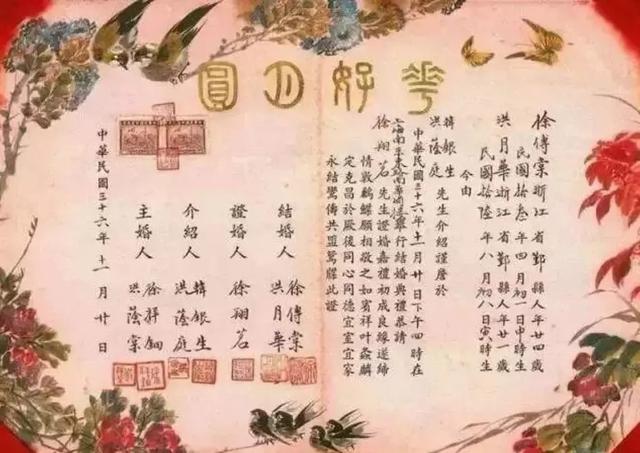 花好月圓
徐傅棠浙江省鄞縣人年廿四歲
民國拾叁年四月初一日申時生
洪月華浙江省鄞縣人年廿一歲
民國拾陸年八月初八寅時生
今由
韓銀生
洪蔭庭
先生介紹謹詹於
中華民國三十六年十一月廿日下午四時在
上海南京東路南華酒樓舉行結婚典禮恭請
徐翔茗先生證婚嘉禮初成良緣遂締
情敦鶼鰈願相敬之如賓祥叶螽麟
定克昌於厥後同心同德宜室宜家
永結鸞儔共盟鴛牒此證
結婚人 徐傅棠
洪月華
證婚人 徐翔茗
介紹人 韓銀生
洪蔭庭
主婚人 徐祥鈿
洪蔭棠
中華民國三十六年十一月廿日